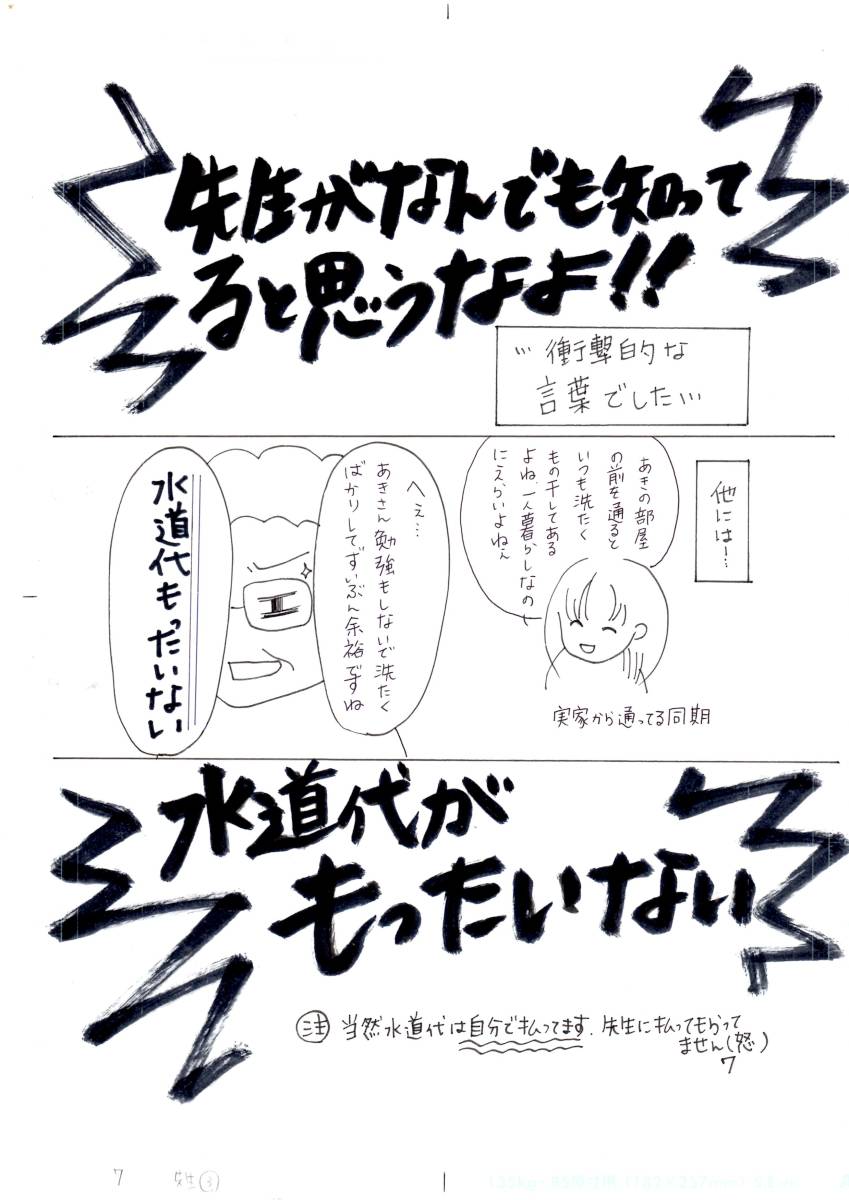 先生がなんでも知って
ると思うなよ!!
…衝撃的な
言葉でした…
他には…
あきの部屋
の前を通ると
いつも洗たく
もの干してある
よね、一人暮らしなの
にえらいよねぇ
実家から通ってる同期
へぇ…
あきさん勉強もしないで洗たく
ばかりしてずいぶん余裕ですね
水道代もったいない
水道代が
もったいない
注 当然水道代は自分で払ってます。先生に払ってもらって
ません(怒)
7
7 先生③